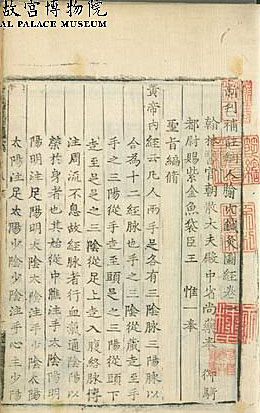 故宮博物院
AL PALACE MUSEUM
新刊補註銅人腧穴鍼灸圖經卷
翰林醫官朝散大夫殿中省尚藥奉御騎
都尉賜紫金魚袋臣王 惟一 奉
聖旨編修
黄帝内經云凡人兩手足各有三陰脉三陽脉以
合為十二經脉也手之三陰從藏走至手
手之三陽從手走至頭足之三陽從頭下
走至足足之三陰從足上走入腹絡脉傳
注周流不息故經脉者行血氣通陰陽以
榮於身者也其始從中焦注手太陰陽明
陽明注足陽明太陰太陰注手少陰太陽
太陽注足太陽少陰少陰注手心主少陽